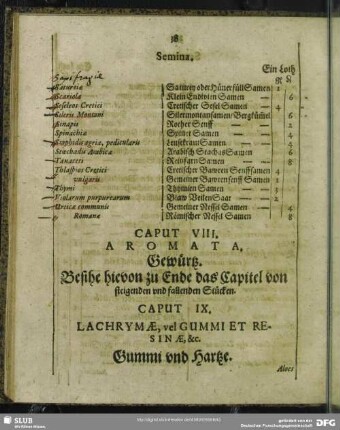 18
Semina.
Ein Loth
Saxifragie
Saturniæ | Saturey oder Hünerfüll Samen 1
Scariola | Klein Endivien Samen — 6
Seseleos Cretici | Cretischer Sesel Samen — 4
Sileris Montani | Silermontansamen/ Bergkümel 6
Sinapis | Rother Senff — — 2
Spinachia | Spinet Samen — 4
Staphidis agria, pedicularis | Lenßekraut Samen — 4
Stœchados Arabicæ | Arabisch Stœchas Samen 6
Tanaceti | Reinfarn Samen — 8
Thlaspeos Cretici | Cretischer Bawren Senffsamen 4
vulgaris | Gemeiner Bawrensenff Samen 1
Thymi | Thymien Samen — 1
Violarum purpurearum | Blaw Violen Saat — 2
Urtica communis | Gemeiner Nessel Samen — 4
Romanæ | Römischer Nessel Samen 8
CAPUT VIII.
AROMATA,
Gewürtz.
Besihe hievon zu Ende das Capitel von
steigenden vnd fallenden Stücken.
CAPUT IX.
LACHRYMÆ, vel GUMMI ET RE-
SINÆ, &c.
Gummi vnd Hartze.
Aloes
SLUB
Wir führen Wissen.
gefördert von der
Deutschen Forschungsgemeinschaft
DFG